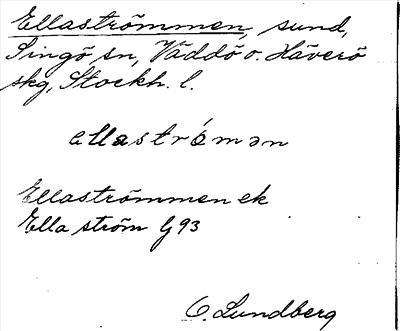 Ellaströmmen, sund,
Singö sn, Väddö o. Häverö
skg, Stockh. l.
ellaströmən
Ellaströmmen ek
Ella ström G 93
O. Lundberg